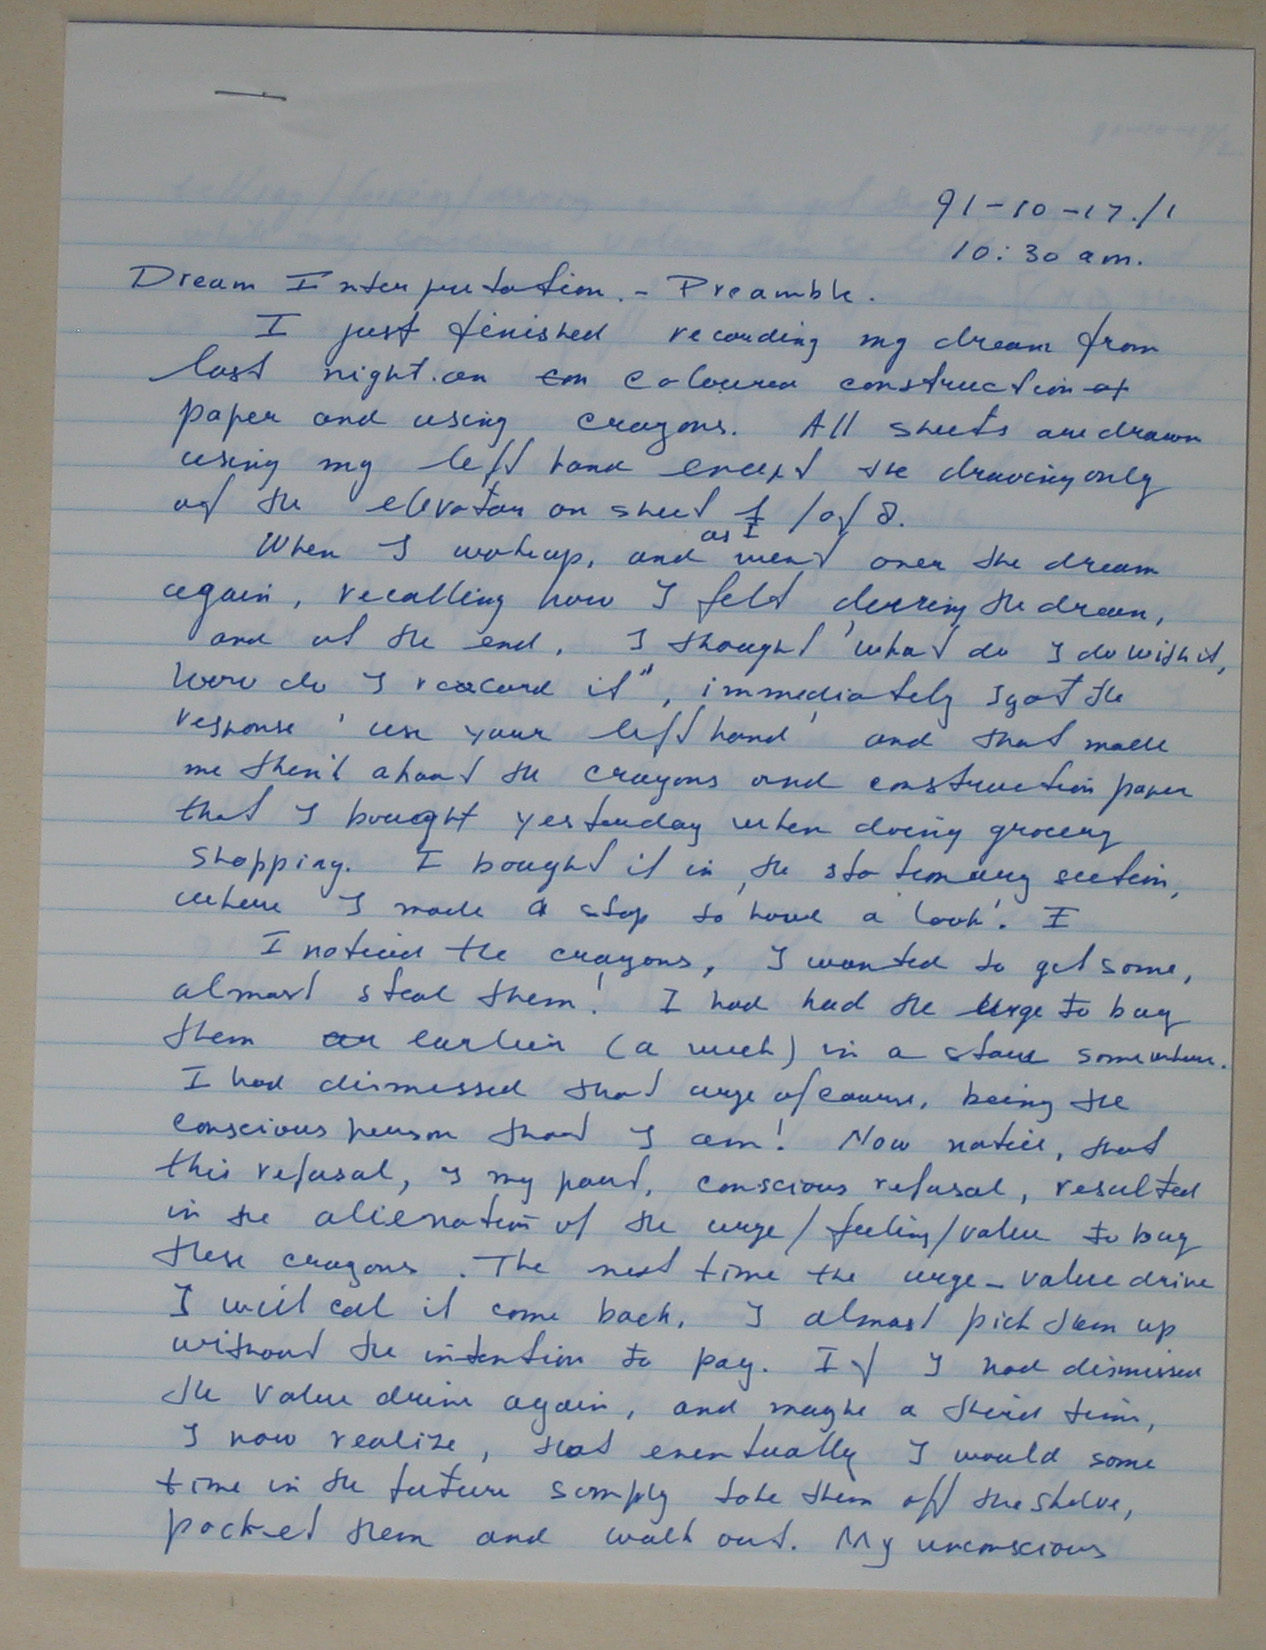 91-10-17./1
10:30 am.
Dream Interpretation. - Preamble.
I just finished recording my dream from
last night. on on coloured construction of
paper and using crayons. All sheets are drawn
using my left hand except the drawing only
of the elevator on sheet 1 / of 8.
When I wokeup, and as I went over the dream
again, recalling how I felt during the dream,
and at the end, I thought 'what do I do with it,
how do I record it", immediately I got the
response 'use your left hand' and that made
me think about the crayons and construction paper
that I bought yesterday when doing grocery
shopping. I bought it in the stationary section,
where I made a stop to 'have a look'. I
I noticed the crayons, I wanted to get some,
almost steal them! I had had the urge to buy
them earlier (a week) in a store somewhere.
I had dismissed that urge of course, being the
conscious person that I am! Now notice, that
this refusal, my part, conscious refusal, resulted
in the alienation of the urge/feeling/value to buy
these crayons. The next time the urge-value drive
I will call it come back, I almost pick them up
without the intention to pay. If I had dismissed
the value drive again, and maybe a third time,
I now realize, that eventually I would some
time in the future simply take them off the shelve,
pocket them and walk out. My unconscious